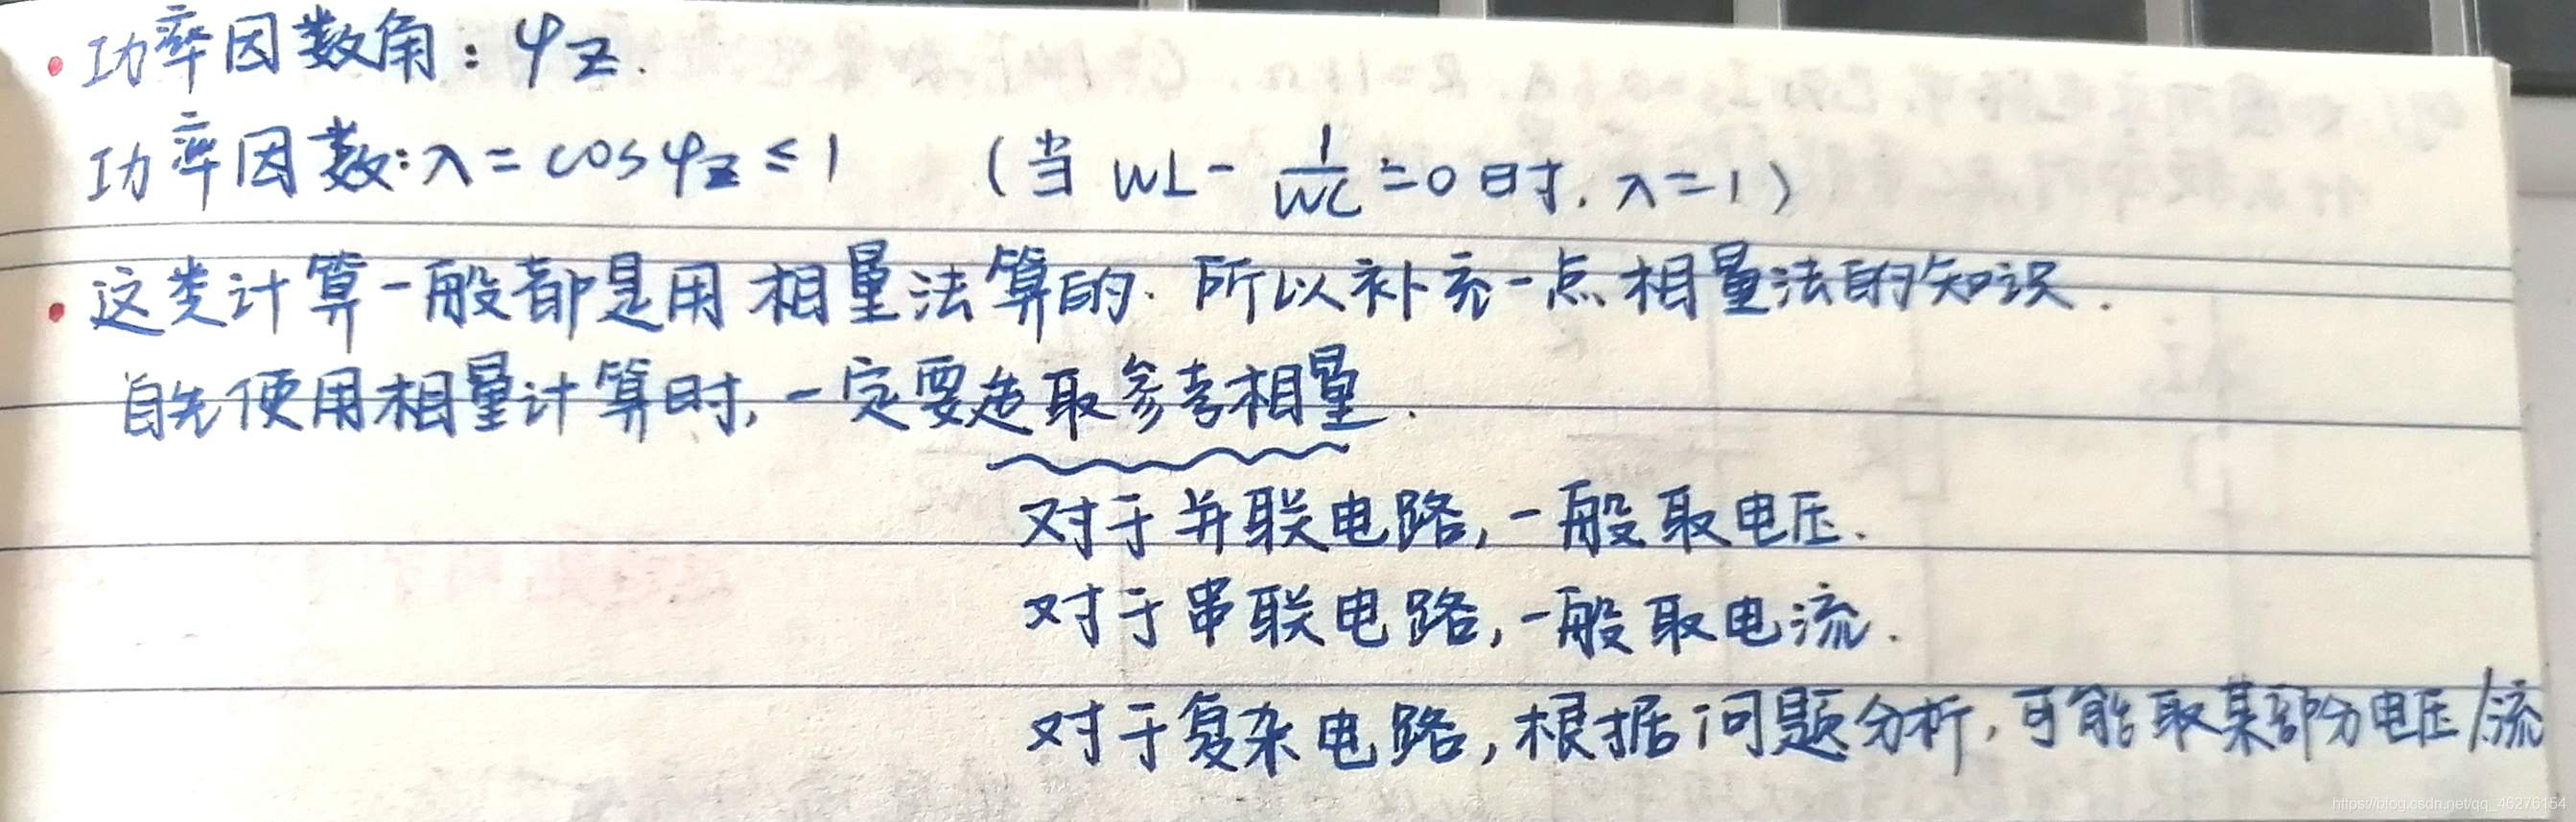 ·功率因数角：φz.
功率因数：λ=cosφz≤1 （当 wL-1/wC=0时.λ=1）
·这类计算一般都是用相量法算的.所以补充一点相量法的知识.
首先使用相量计算时,一定要选取参考相量.
对于并联电路,一般取电压.
对于串联电路,一般取电流.
对于复杂电路,根据问题分析,可能取某部分电压/流
https://blog.csdn.net/qq_46276154